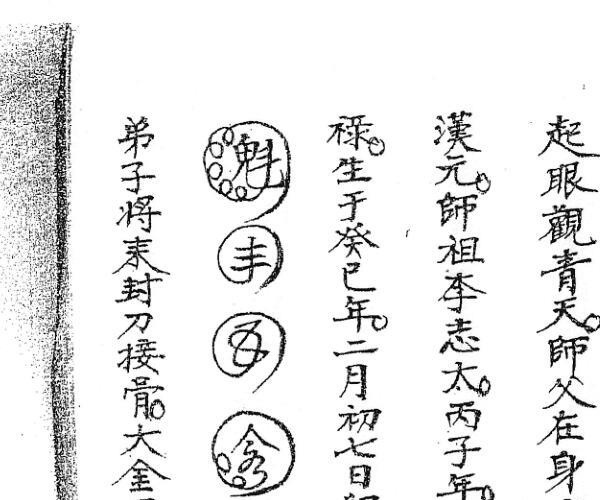 起眼觀青天。師父在身
漢元。師祖李志太。丙子年。
祿。生于癸巳年。二月初七日
魁
弟子將來封刀接骨。大金